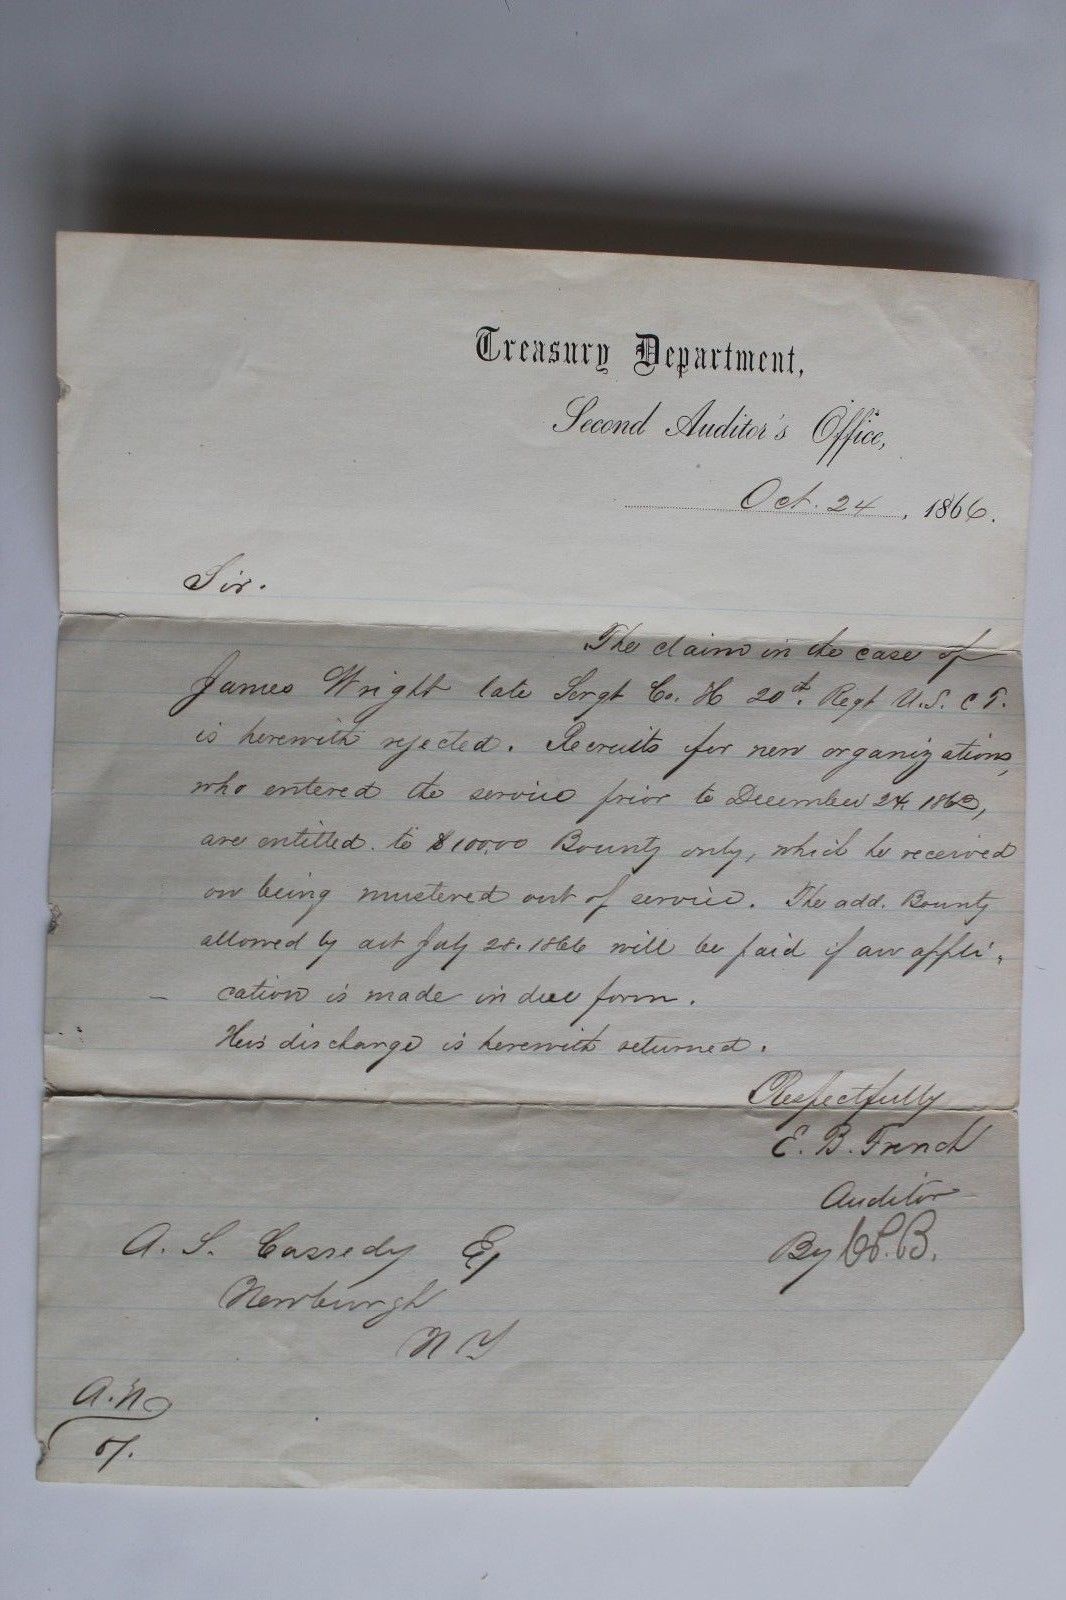 Treasury Department,
Second Auditor's Office,
Oct. 24, 1866.
Sir.
The claim in the case of
James Wright late Sergt Co. H 20th. Regt U.S. C T.
is herewith rejected. Recruits for new organizations,
who entered the service prior to December 24, 1863,
are entitled to $100.00 Bounty only, which he received
on being mustered out of service. The add. Bounty
allowed by act July 28. 1866 will be paid if an appli-
cation is made in due form.
His discharge is herewith returned.
Respectfully
E. B. French
Auditor
By B.
A. S. Cassedy Esq
Newburgh
N Y
A.N